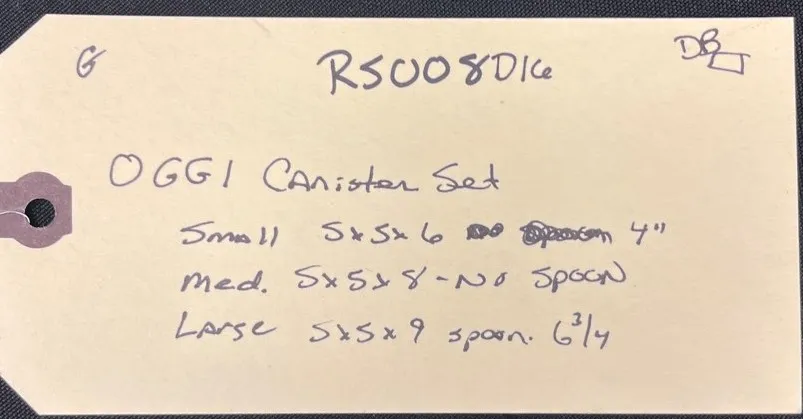 G
RS008D16
DB
OGGI Canister Set
Small 5x5x6 no spoon 4"
med. 5x5x8 - NO SPOON
Large 5x5x9 spoon. 6 3/4